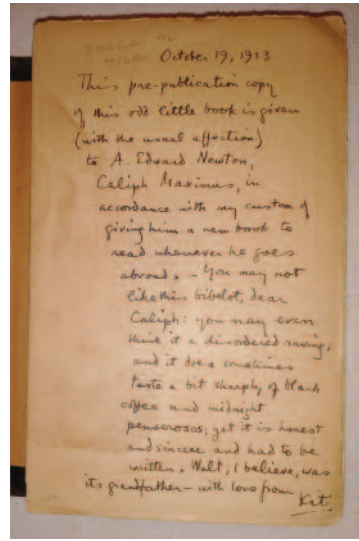 October 19, 1923
This pre-publication copy
of this odd little book is given
(with the usual affection)
to A. Edward Newton,
Caliph Maximus, in
accordance with my custom of
giving him a new book to
read whenever he goes
abroad. - You may not
like this bibelot, dear
Caliph: you may even
think it a disordered raving,
and it does sometimes
taste a bit sharply of black
coffee and midnight
penserosos; yet it is honest
and sincere and had to be
written. Walt, I believe, was
its grandfather - with love from
Kit